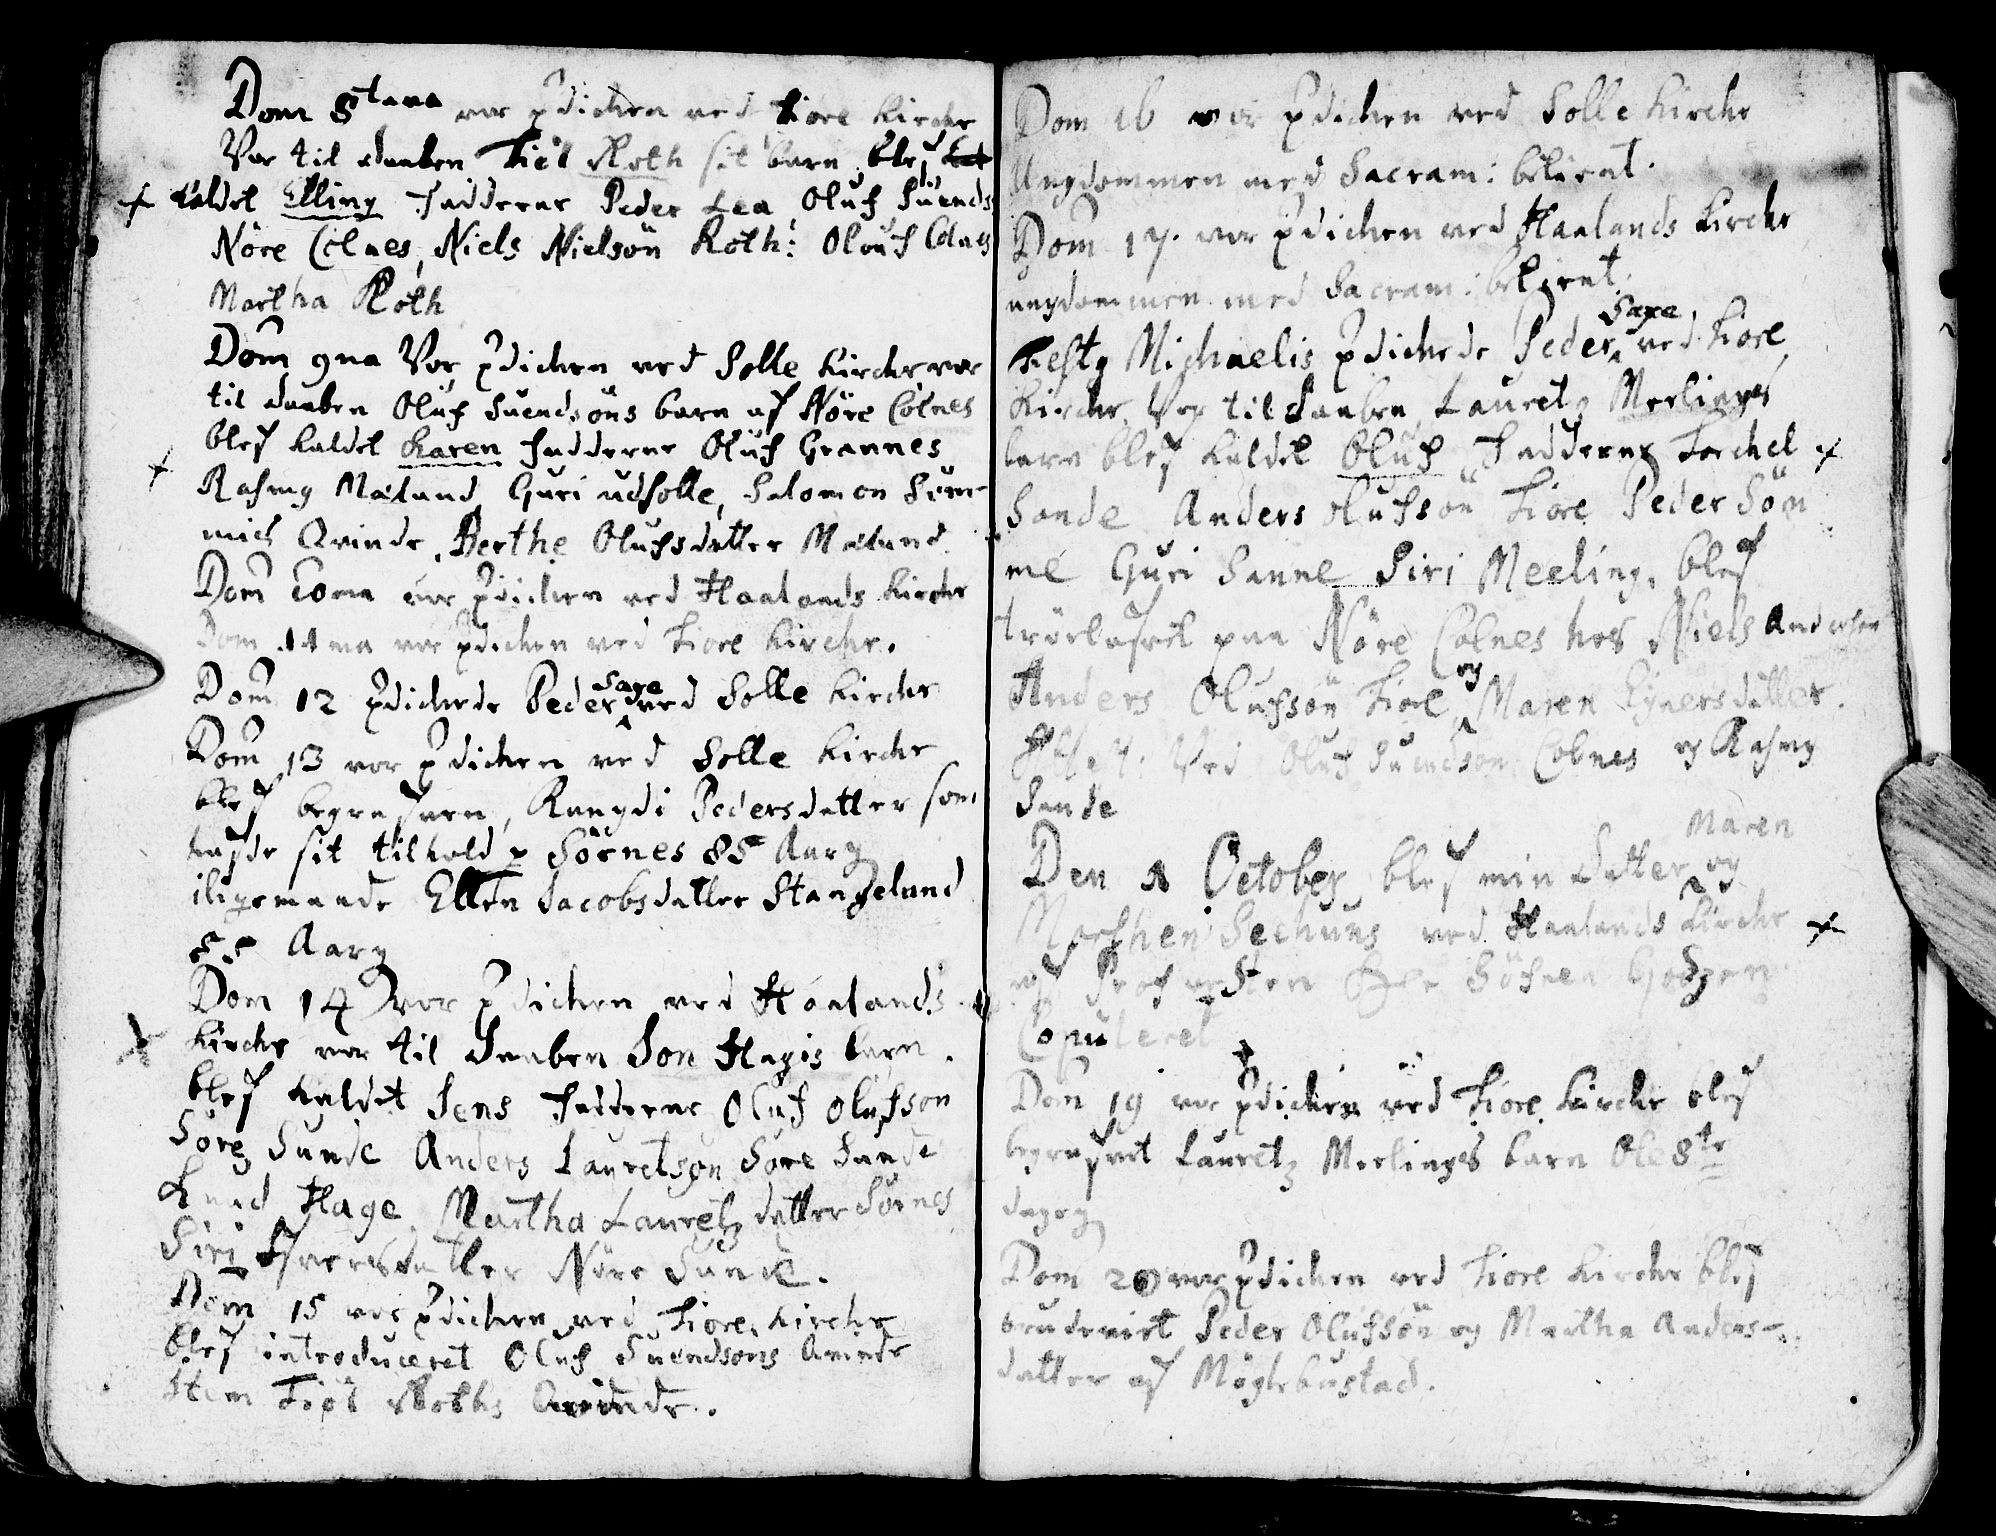 Dom 8tava vor pdichen ved Tiore Kirche
Vor til daaben Tiöl Roth sit barn blef
kaldet Elling Fadderne Peder Lea, Oluf Suends
Nöre Colnes, Niels Nielsön Roth: Oluf Colnes
Martha Roth
Dom 9na Vor pdichen ved Solle Kirche vor
til daaben Oluf Suendsöns barn af Nöre Colnes
blef kaldet Karen Fadderne Oluf Grannes
Rasmg Mæland, Guri udsolle, Salomon Süm-
mich Qvinde, Berthe Olufsdatter Mæland.
Dom 10ma vor pdichen ved Haalands Kirche
Dom 11ma vor pdichen ved Tiore Kirche.
Dom 12 pdichede Peder Saxe ved Solle Kirche
Dom 13 vor pdichen ved Solle Kirche
blef begrafven, Rangdi Pedersdatter som
hafde sit tilhold p Sörnes 85 Aarg
iligemaade Ellen Jacobsdatter Stangeland
85 Aarg
Dom 14 vor pdichen ved Haalands
Kirche vor til Daaben Jon Hagis barn.
blef kaldet Jens Fadderne Oluf Olufson
Söre Sunde Anders Lauretsøn Söre Sunde
Knud Hage, Martha Lauretz datter Sörnes
Siri Iversdatter Nöre Sunde.
Dom 15 vor pdichen ved Tiore Kirche
blef introduceret Oluf Suendsons Qvinde
Item Tiöl Roths Qvinde.
Dom 16 vor pdichen ved Solle Kirche
Ungdommen med Sacram: betient.
Dom 17. vor pdichen ved Haalands Kirche
ungdommen med Sacram: betient.
Festg Michaelis pdichede Peder Saxe ved Tiore
Kirche, Vor til daaben Lauretz Merlinges
barn blef kaldet Oluf Fadderne Torchel
Sande Anders Olufsön Tiore Peder Söm
me Guri Sanne Siri Meeling, blef
trörlofvet paa Nöre Colnes hos Niels Anderson
Anders Olufsön Tiore og Maren Ejnersdatter.
Ved Oluf Suendson Colnes og Rasmg
Sande
Den 1 October blef min Datter Maren og
Sechuus ved Haalands Kirche
af Profvesten
Copuleret
Dom 19 vor pdichen ved Tiore Kirche blef
begrafvet Lauretz Merlinges barn Ole 8te
dagg
Dom 20 vor pdichen ved Tiore Kirche blef
brudeviet Peder Olufsön og Martha Anders-
datter af Möglebustad.